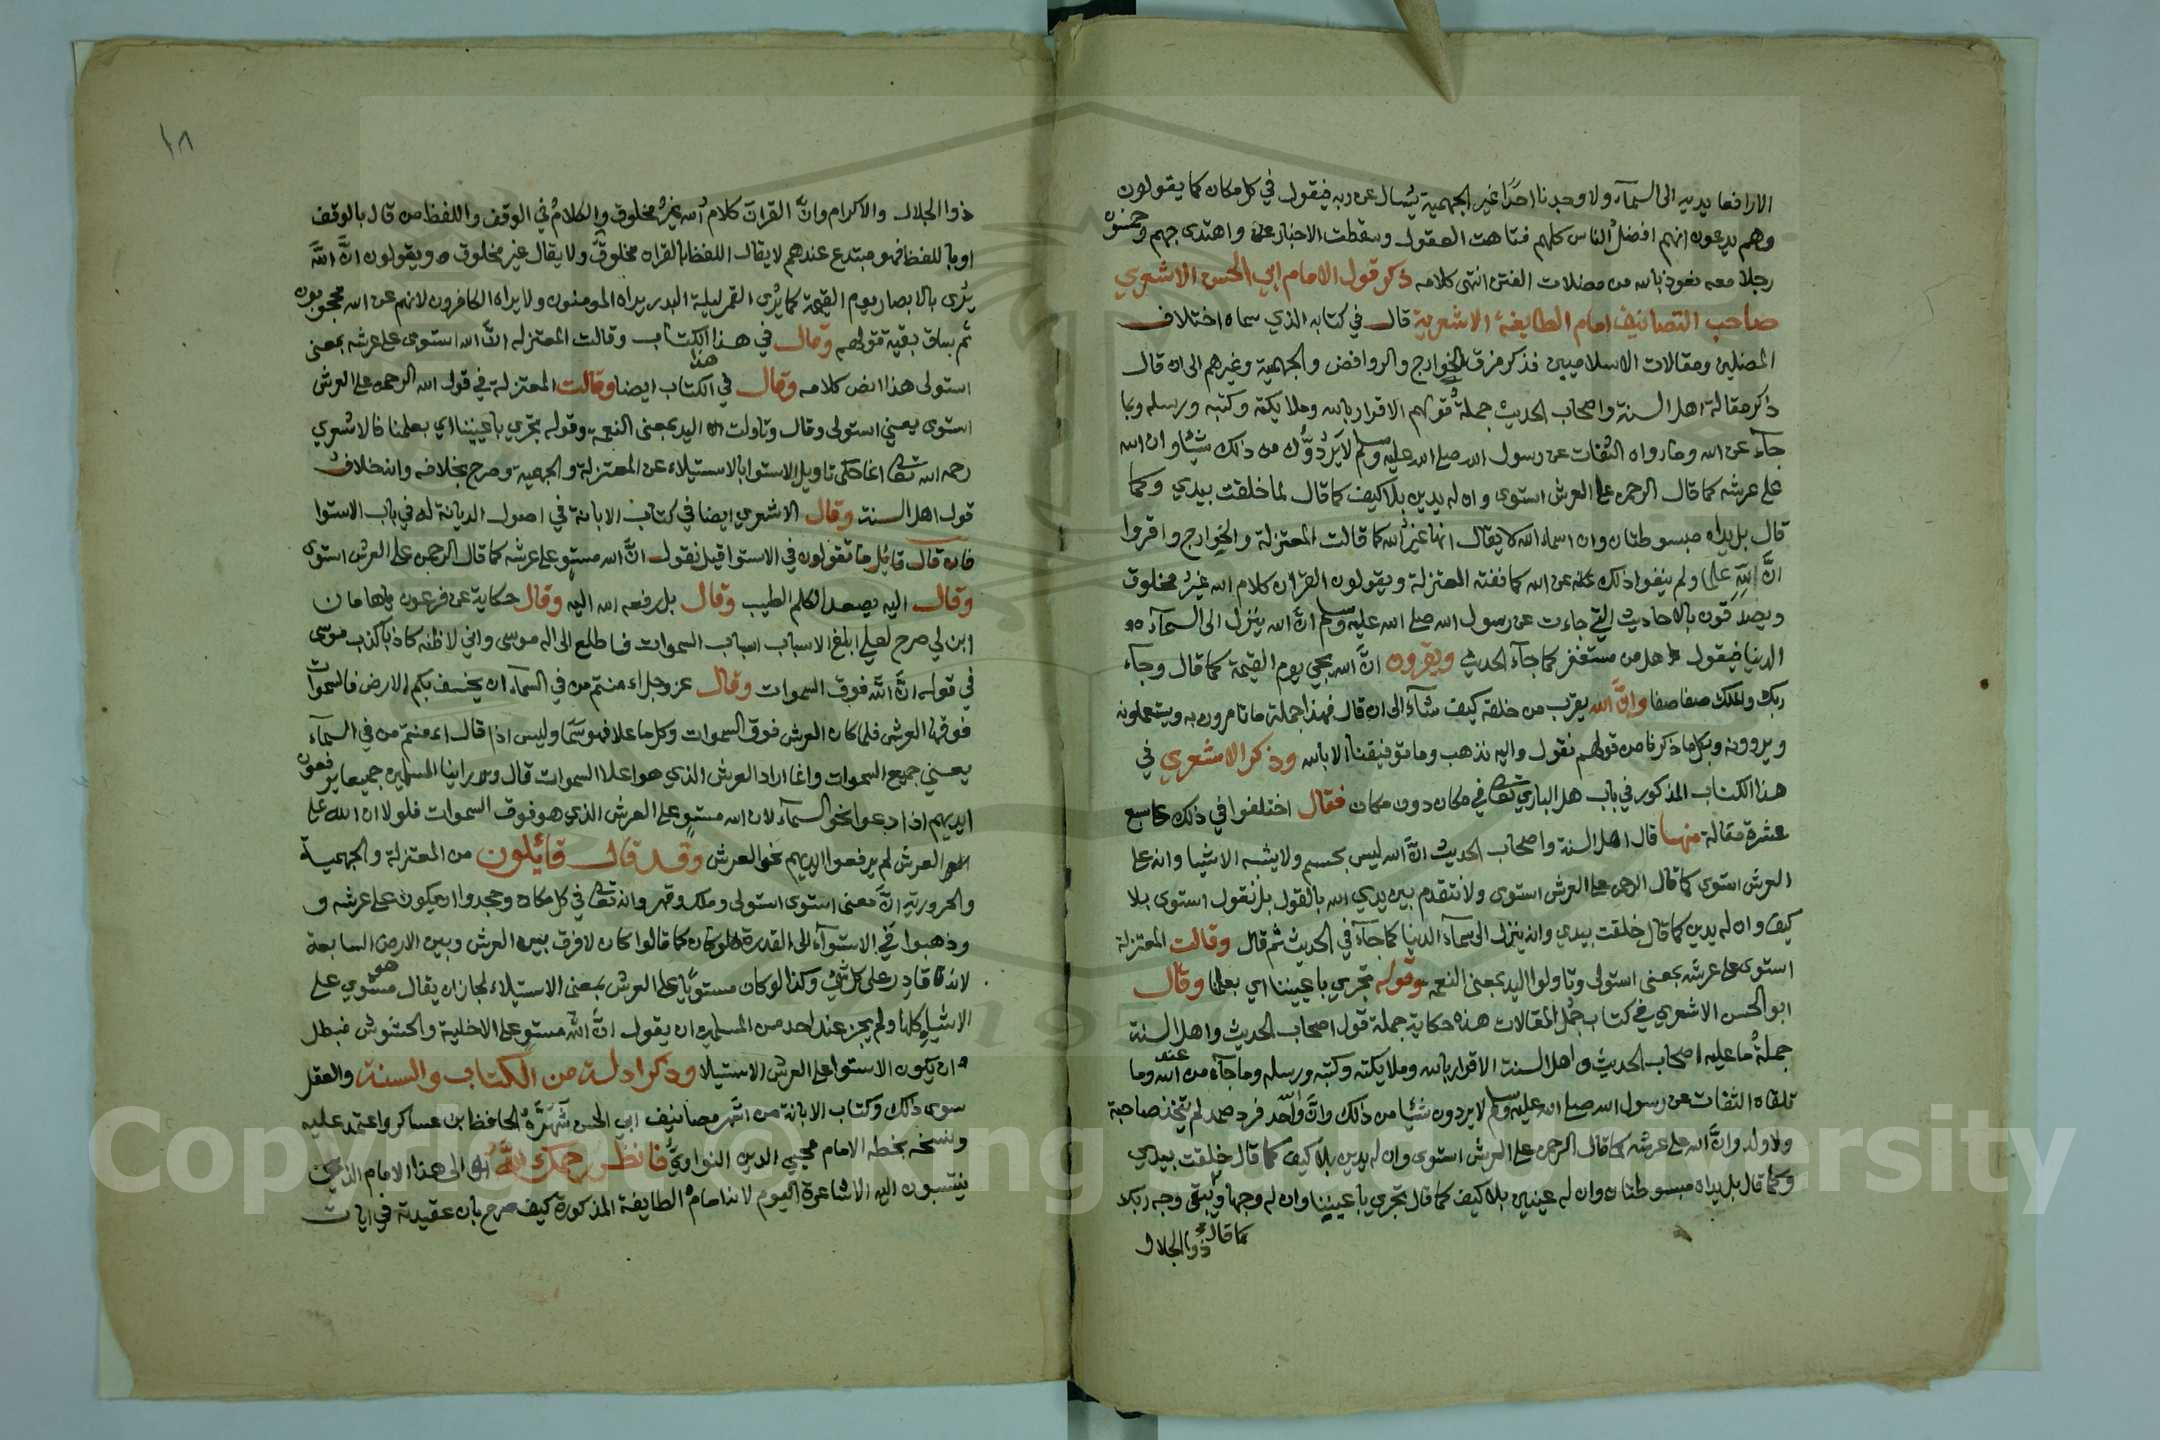 الارافعا يديه الى السمآء ولا وجدنا احدًا غير الجهمية يسال عن ربه فيقول في كل مكان كما يقولون
وهم يدعون انهم افضل الناس كلهم فتاهت العقول وسقطت الاخبار عنهم واهتدى جهم وخمسون
رجلا معه نعوذ بالله من مضلات الفتن انتهى كلامه ذكر قول الامام ابي الحسن الاشعري
صاحب التصانيف امام الطايفة الاشعرية قال في كتابه الذي سماه اختلاف
المضلين ومقالات الاسلاميين فذكر فرق الخوارج والروافض والجهمية وغيرهم الى ان قال
ذكر مقالة اهل السنة واصحاب الحديث جملة قولهم الاقرار بالله وملايكته وكتبه ورسله وبما
جآء عن الله وما رواه الثقات عن رسول الله صلى الله عليه وسلم لا يردون من ذلك شيئا وان الله
على عرشه كما قال الرحمن على العرش استوى وان له يدين بلا كيف كما قال لما خلقت بيدي وكما
قال بل يداه مبسوطتان وان اسماء الله لا يقال انها غير الله كما قالت المعتزلة والخوارج واقروا
ان لله علما ولم ينفوا ذلك عن الله كما نفته المعتزلة ويقولون القران كلام الله غير مخلوق
ويصدقون بالاحاديث التي جاءت عن رسول الله صلى الله عليه وسلم ان الله ينزل الى السمآء
الدنيا فيقول هل من مستغفر كما جآء الحديث ويقرون ان الله يجي يوم القيمة كما قال وجآء
ربك والملك صفا صفا وان الله يقرب من خلقه كيف شآء الى ان قال فهذا جملة ما يامرون به ويستعملونه
ويروونه وبكل ما ذكرنا من قولهم نقول واليه نذهب وما توفيقنا الا بالله وذكر الاشعري في
هذا الكتاب المذكور في باب هل الباري تعالى في مكان دون مكان فقال اختلفوا في ذلك على سبع
عشرة مقالة منها قال اهل السنة واصحاب الحديث ان الله ليس بجسم ولا يشبه الاشيا وانه على
العرش استوى كما قال الرحمن على العرش استوى ولا نتقدم بين يدي الله بالقول بل نقول استوى بلا
كيف وان له يدين كما قال خلقت بيدي وانه ينزل الى سمآء الدنيا كما جآء في الحديث ثم قال وقالت المعتزلة
استوى على عرشه بمعنى استولى وتاولوا اليد بمعنى النعمة وقوله تجري باعيننا اي بعلمنا وقال
ابو الحسن الاشعري في كتاب جمل المقالات هذه حكاية جملة قول اصحاب الحديث واهل السنة
جملة ما عليه اصحاب الحديث واهل السنة الاقرار بالله وملايكته وكتبه ورسله وما جآء من عند الله وما
تلقاه الثقات عن رسول الله صلى الله عليه وسلم لا يردون شيئا من ذلك وان الله واحد فرد صمد لم يتخذ صاحبة
ولا ولد وان الله على عرشه كما قال الرحمن على العرش استوى وان له يدين بلا كيف كما قال خلقت بيدي
وكما قال بل يداه مبسوطتان وان له عينين بلا كيف كما قال تجري باعيننا وان له وجها ويبقى وجه ربك
كما قال
ذوا الجلال
١٨
ذوا الجلال والاكرام وان القران كلام الله غير مخلوق والكلام في الوقف واللفظ من قال بالوقف
او باللفظ فهو مبتدع عندهم لا يقال اللفظ بالقران مخلوق ولا يقال غير مخلوق ويقولون ان الله
يرى بالابصار يوم القيمة كما يرى القمر ليلة البدر يراه المومنون ولا يراه الكافرون لانهم عن الله محجوبون
ثم ساق بقية قولهم وقال في هذا الكتاب وقالت المعتزله ان الله استوى على عرشه بمعنى
استولى هذا نص كلامه وقال في هذا الكتاب ايضا وقالت المعتزلة في قول الله الرحمن على العرش
استوى يعني استولى وقال وتاولت اليد بمعنى النعمة وقوله تجري باعيننا اي بعلمنا فالاشعري
رحمه الله تعالى انما حكى تاويل الاستوا بالاستيلاء عن المعتزلة والجهمية وصرح بخلافه وانه خلاف
قول اهل السنة وقال الاشعري ايضا في كتاب الابانة في اصول الديانة له في باب الاستوا
فان قال قائل ما تقولون في الاستوا قيل نقول ان الله مستو على عرشه كما قال الرحمن على العرش استوى
وقال اليه يصعد الكلم الطيب وقال بل رفعه الله اليه وقال حكاية عن فرعون يا هامان
ابن لي صرح لعلي ابلغ الاسباب اسباب السموات فاطلع الى اله موسى واني لاظنه كاذبا كذب موسى
في قوله ان الله فوق السموات وقال عز وجل اءمنتم من في السمآء ان يخسف بكم الارض فالسموات
فوقها العرش فلما كان العرش فوق السموات وكل ما علا فهو سما وليس اذا قال اءمنتم من في السمآء
يعني جميع السموات وانما اراد العرش الذي هو اعلا السموات قال وراينا المسلمين جميعا يرفعون
ايديهم اذا دعوا نحو السمآء لان الله مستو على العرش الذي هو فوق السموات فلولا ان الله على
العرش لم يرفعوا ايديهم نحو العرش وقد قال قائلون من المعتزلة والجهمية
والحرورية ان معنى استوى استولى وملك وقهر وانه تعالى في كل مكان وجحدوا ان يكون على عرشه و
وذهبوا في الاستوآء الى القدرة فلو كان كما قالوا كان لا فرق بين العرش وبين الارض السابعة
لانه قادر على كل شي وكذا لو كان مستويا على العرش بمعنى الاستيلاء لجاز ان يقال هو مستوي على
الاشياء كلها ولم يجز عند احد من المسلمين ان يقول ان الله مستو على الاخلية والحشوش فبطل
ان يكون الاستوا على العرش الاستيلا وذكر ادلة من الكتاب والسنة والعقل
سوى ذلك وكتاب الابانة من اشهر تصانيف ابي الحسن شهره الحافظ ابن عساكر واعتمد عليه
ونسخه بخطه الامام محيي الدين النواوي فانظر رحمك الله الى هذا الامام الذي
ينتسبون اليه الاشاعرة اليوم لانه امام الطايفة المذكورة كيف صرح بان عقيدته في ايات
Copyright © King Saud University
1957